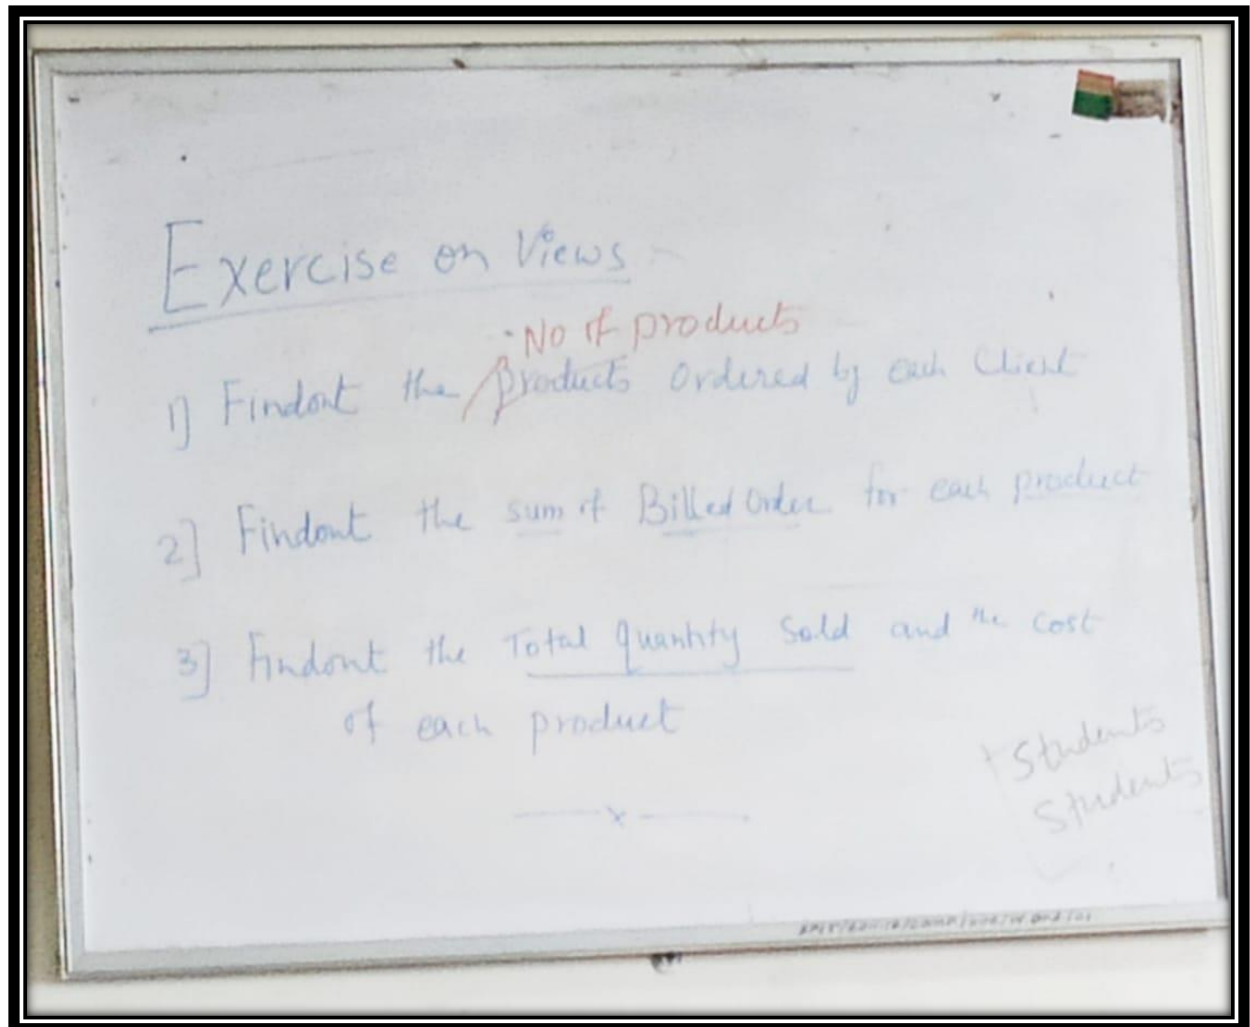 Exercise on Views
No of products
1] Findout the products Ordered by each Client
2] Findout the sum of Billed Order for each product
3] Findout the Total quantity Sold and the cost
of each product
x
Students
Students